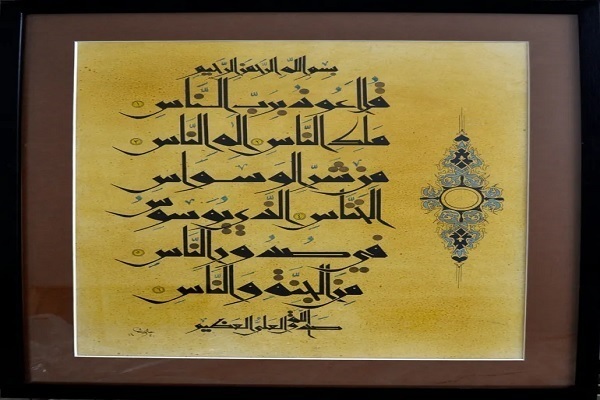 بسم الله الرحمن الرحيم
قُل اعُوذُ بِرَبِّ النَّاسِ
مَلِكِ النَّاسِ اله النَّاسِ
مِن شَرِّ الوَسواسِ
الخَنّاسِ الَّذي يُوَسوِسُ
في صُدُورِ النَّاسِ
مِنَ الجِنَّةِ وَالنَّاسِ
صدق الله العلي العظيم